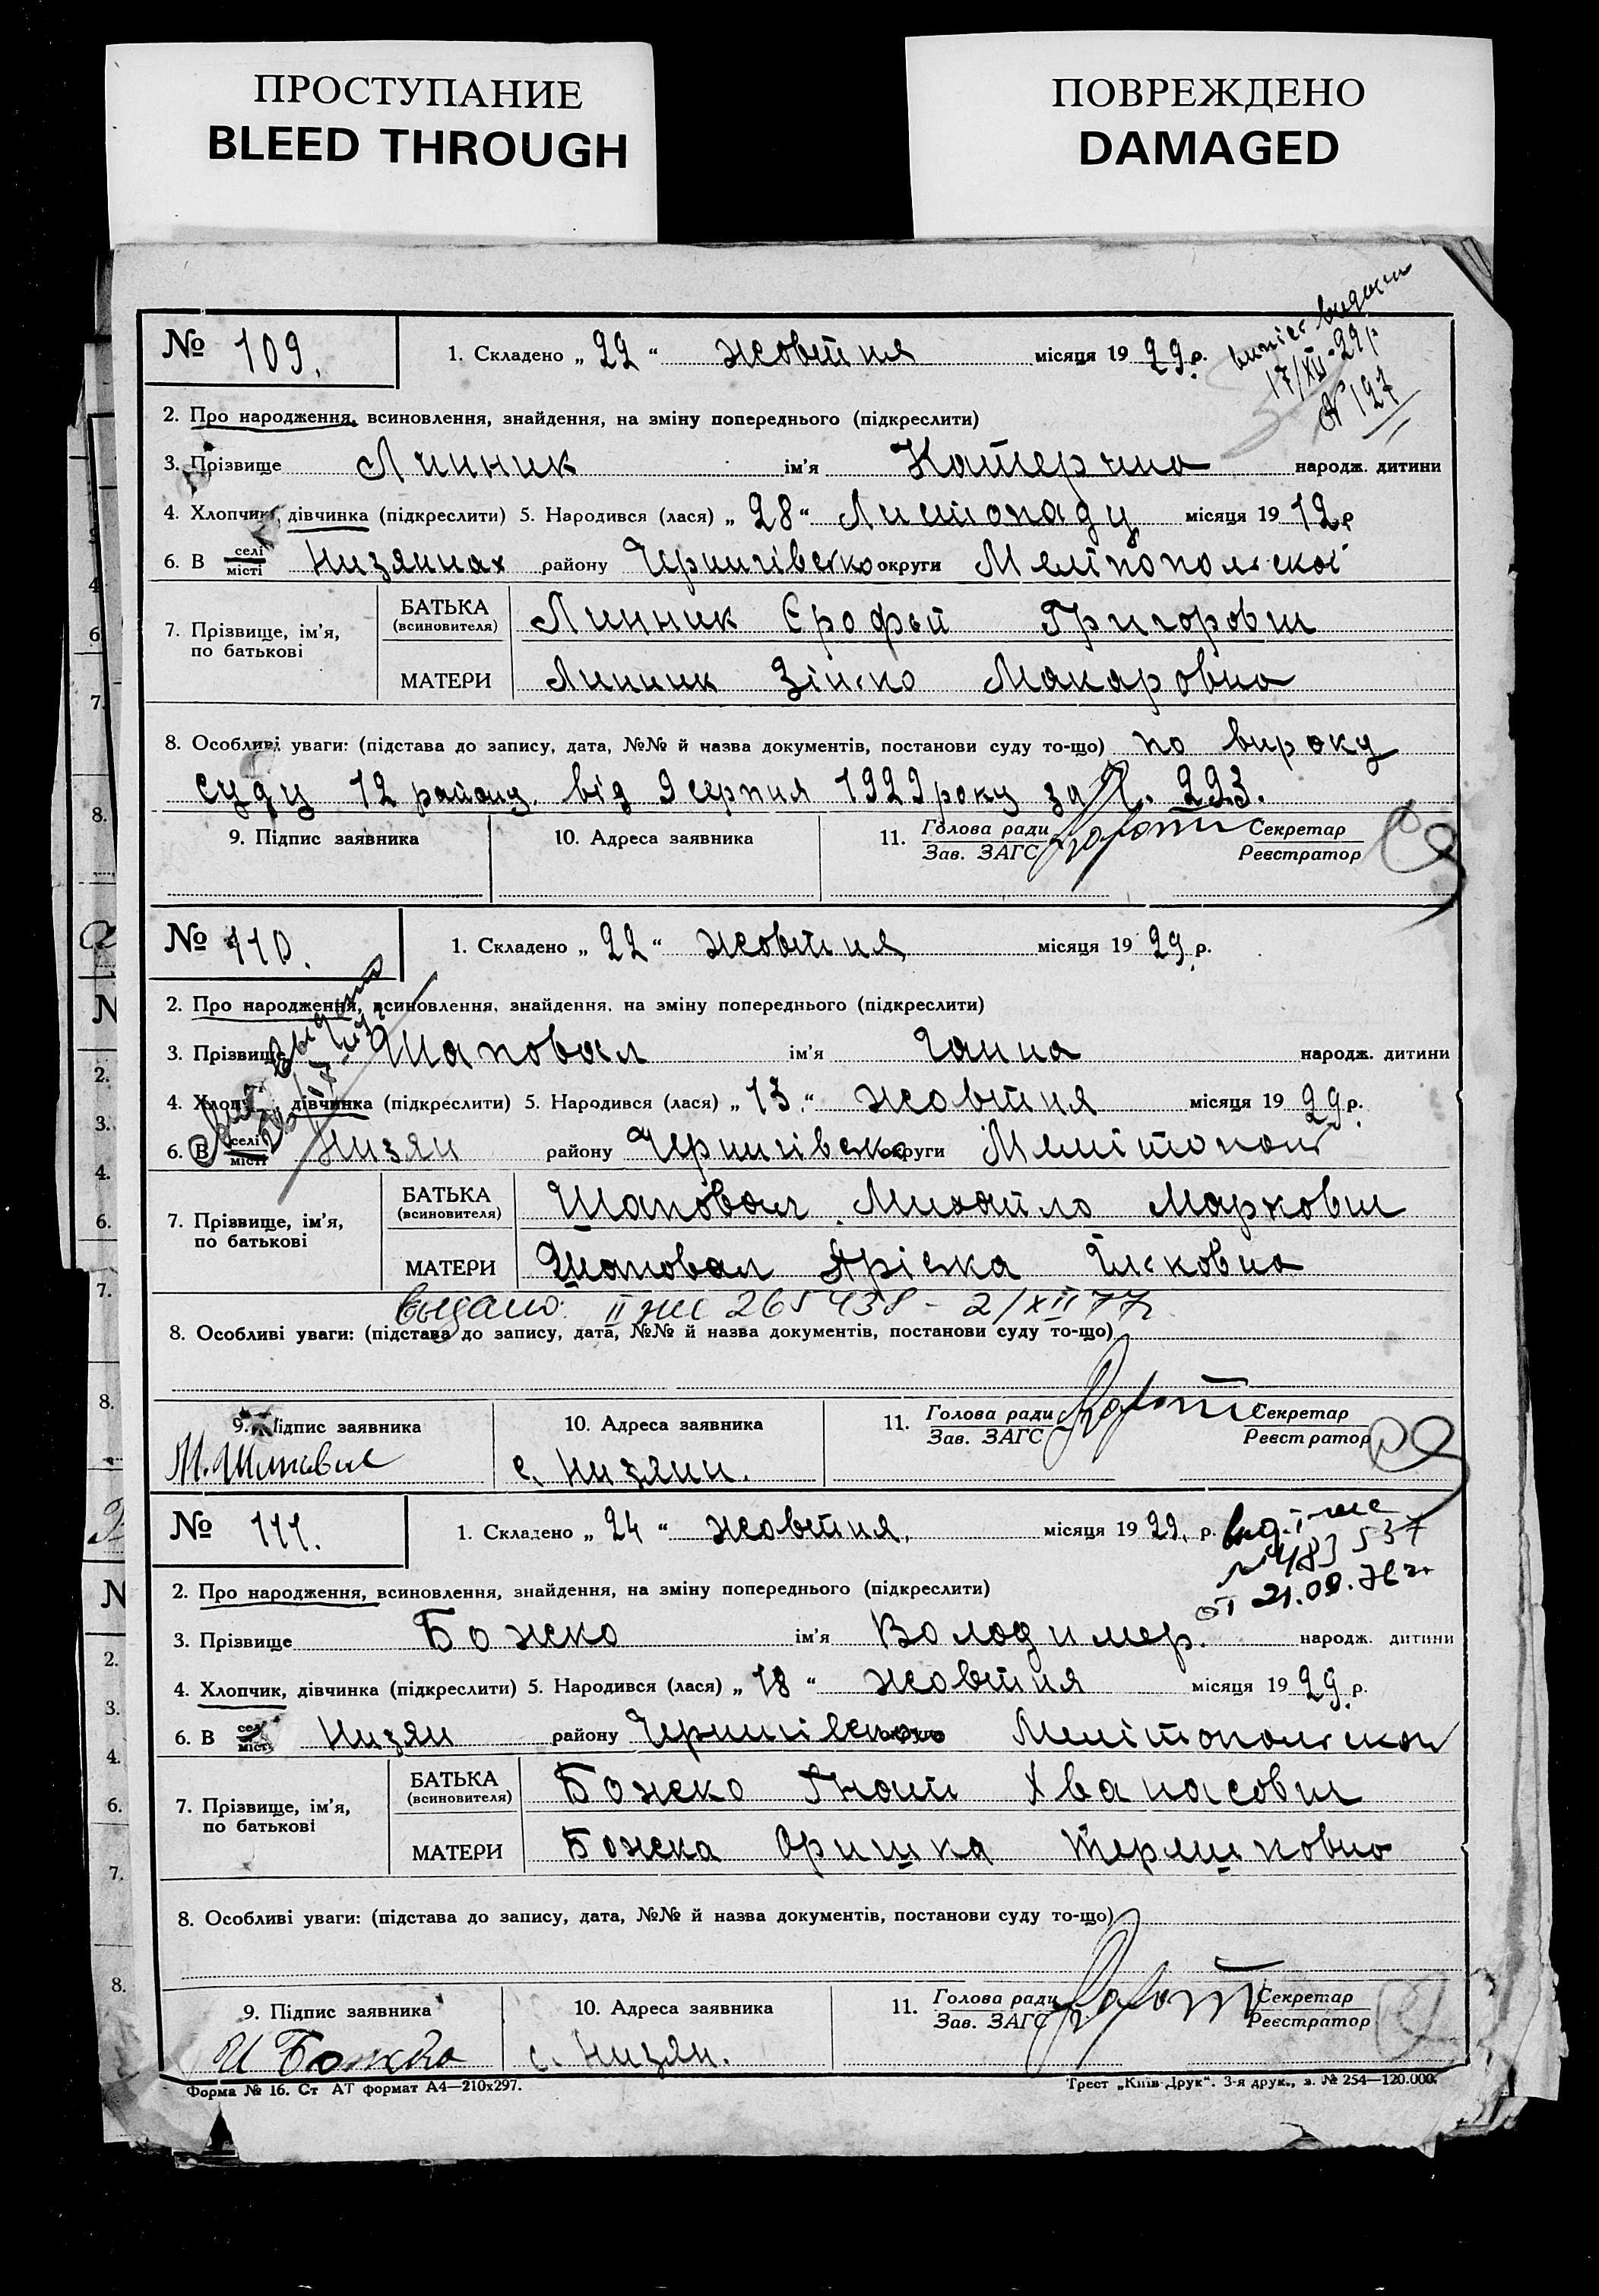 ПРОСТУПАНИЕ
BLEED THROUGH
ПОВРЕЖДЕНО
DAMAGED
№ 109.
1. Складено „ 22 “ жовтня місяця 19 29 р.
видано
17/XII-29 р.
№ 127
2. Про народження, всиновлення, знайдення, на зміну попереднього (підкреслити)
3. Прізвище Линник ім'я Катерина народж. дитини
4. Хлопчик, дівчинка (підкреслити) 5. Народився (лася) „ 28 “ Листопаду місяця 19 12 р
6. В селі місті Низянах району Чернигівско округи Мелітопольскої
7. Прізвище, ім'я, по батькові
БАТЬКА (всиновителя) Линник Єрофей Григорович
МАТЕРИ Линник Зінько Макаровна
8. Особливі уваги: (підстава до запису, дата, №№ й назва документів, постанови суду то-що) по вироку
суду 12 району. від 9 серпня 1929 року за № 293.
9. Підпис заявника
10. Адреса заявника
11. Голова ради Зав. ЗАГС Секретар Реєстратор
№ 110.
1. Складено „ 22 “ жовтня місяця 19 29 р.
2. Про народження, всиновлення, знайдення, на зміну попереднього (підкреслити)
3. Прізвище Шаповал ім'я Ганна народж. дитини
4. Хлопчик, дівчинка (підкреслити) 5. Народився (лася) „ 13. “ жовтня місяця 19 29 р.
6. В селі місті Низян району Чернигівско округи Мелітопол
7. Прізвище, ім'я, по батькові
БАТЬКА (всиновителя) Шаповал Михайло Маркович
МАТЕРИ Шаповал Яріська
Выдано: II же 265438 - 2/XII 77г
8. Особливі уваги: (підстава до запису, дата, №№ й назва документів, постанови суду то-що)
9. Підпис заявника
10. Адреса заявника
11. Голова ради Зав. ЗАГС Секретар Реєстратор
М. Шаповал
с. Низяни.
№ 111.
1. Складено „ 24 “ жовтня. місяця 19 29. р.
выд. I-же
№ 483537
от 21.09.76 г.
2. Про народження, всиновлення, знайдення, на зміну попереднього (підкреслити)
3. Прізвище Божко ім'я Володимер. народж. дитини
4. Хлопчик, дівчинка (підкреслити) 5. Народився (лася) „ 18 “ жовтня місяця 19 29 р.
6. В селі місті Низян району Чернигівского Мелітопольскои
7. Прізвище, ім'я, по батькові
БАТЬКА (всиновителя) Божко Гнат Хванасович
МАТЕРИ Божка Оришка Терешковно
8. Особливі уваги: (підстава до запису, дата, №№ й назва документів, постанови суду то-що)
9. Підпис заявника
10. Адреса заявника
11. Голова ради Зав. ЗАГС Секретар Реєстратор
И Божко
с. Низян.
Форма № 16. Ст АТ формат А4—210х297.
Трест „Київ-Друк“. 3-я друк., з. № 254—120.000.